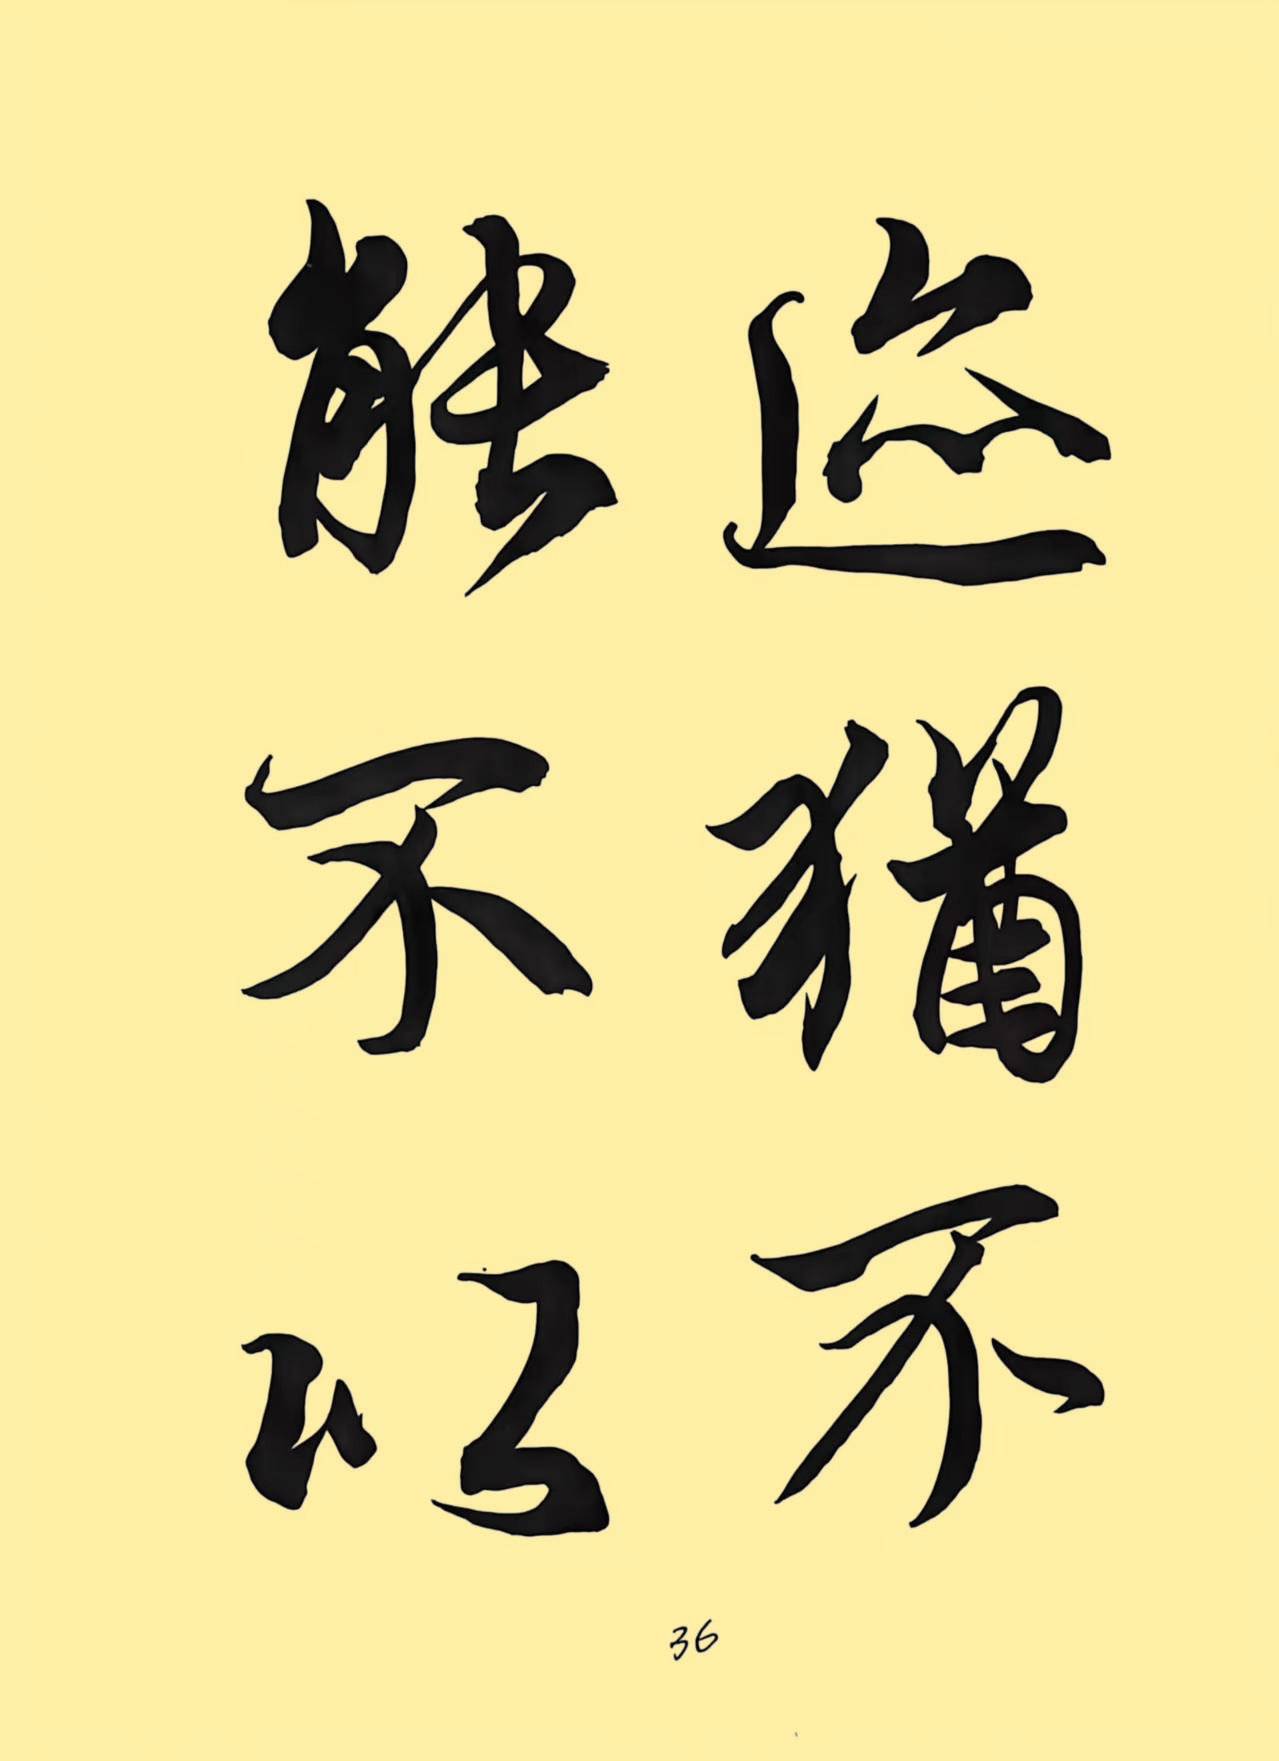 迹猶不
能不以
36